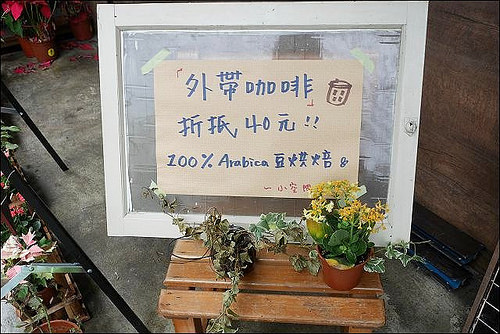 「外帶咖啡」
折抵40元!!
100% Arabica 豆烘焙
~小空